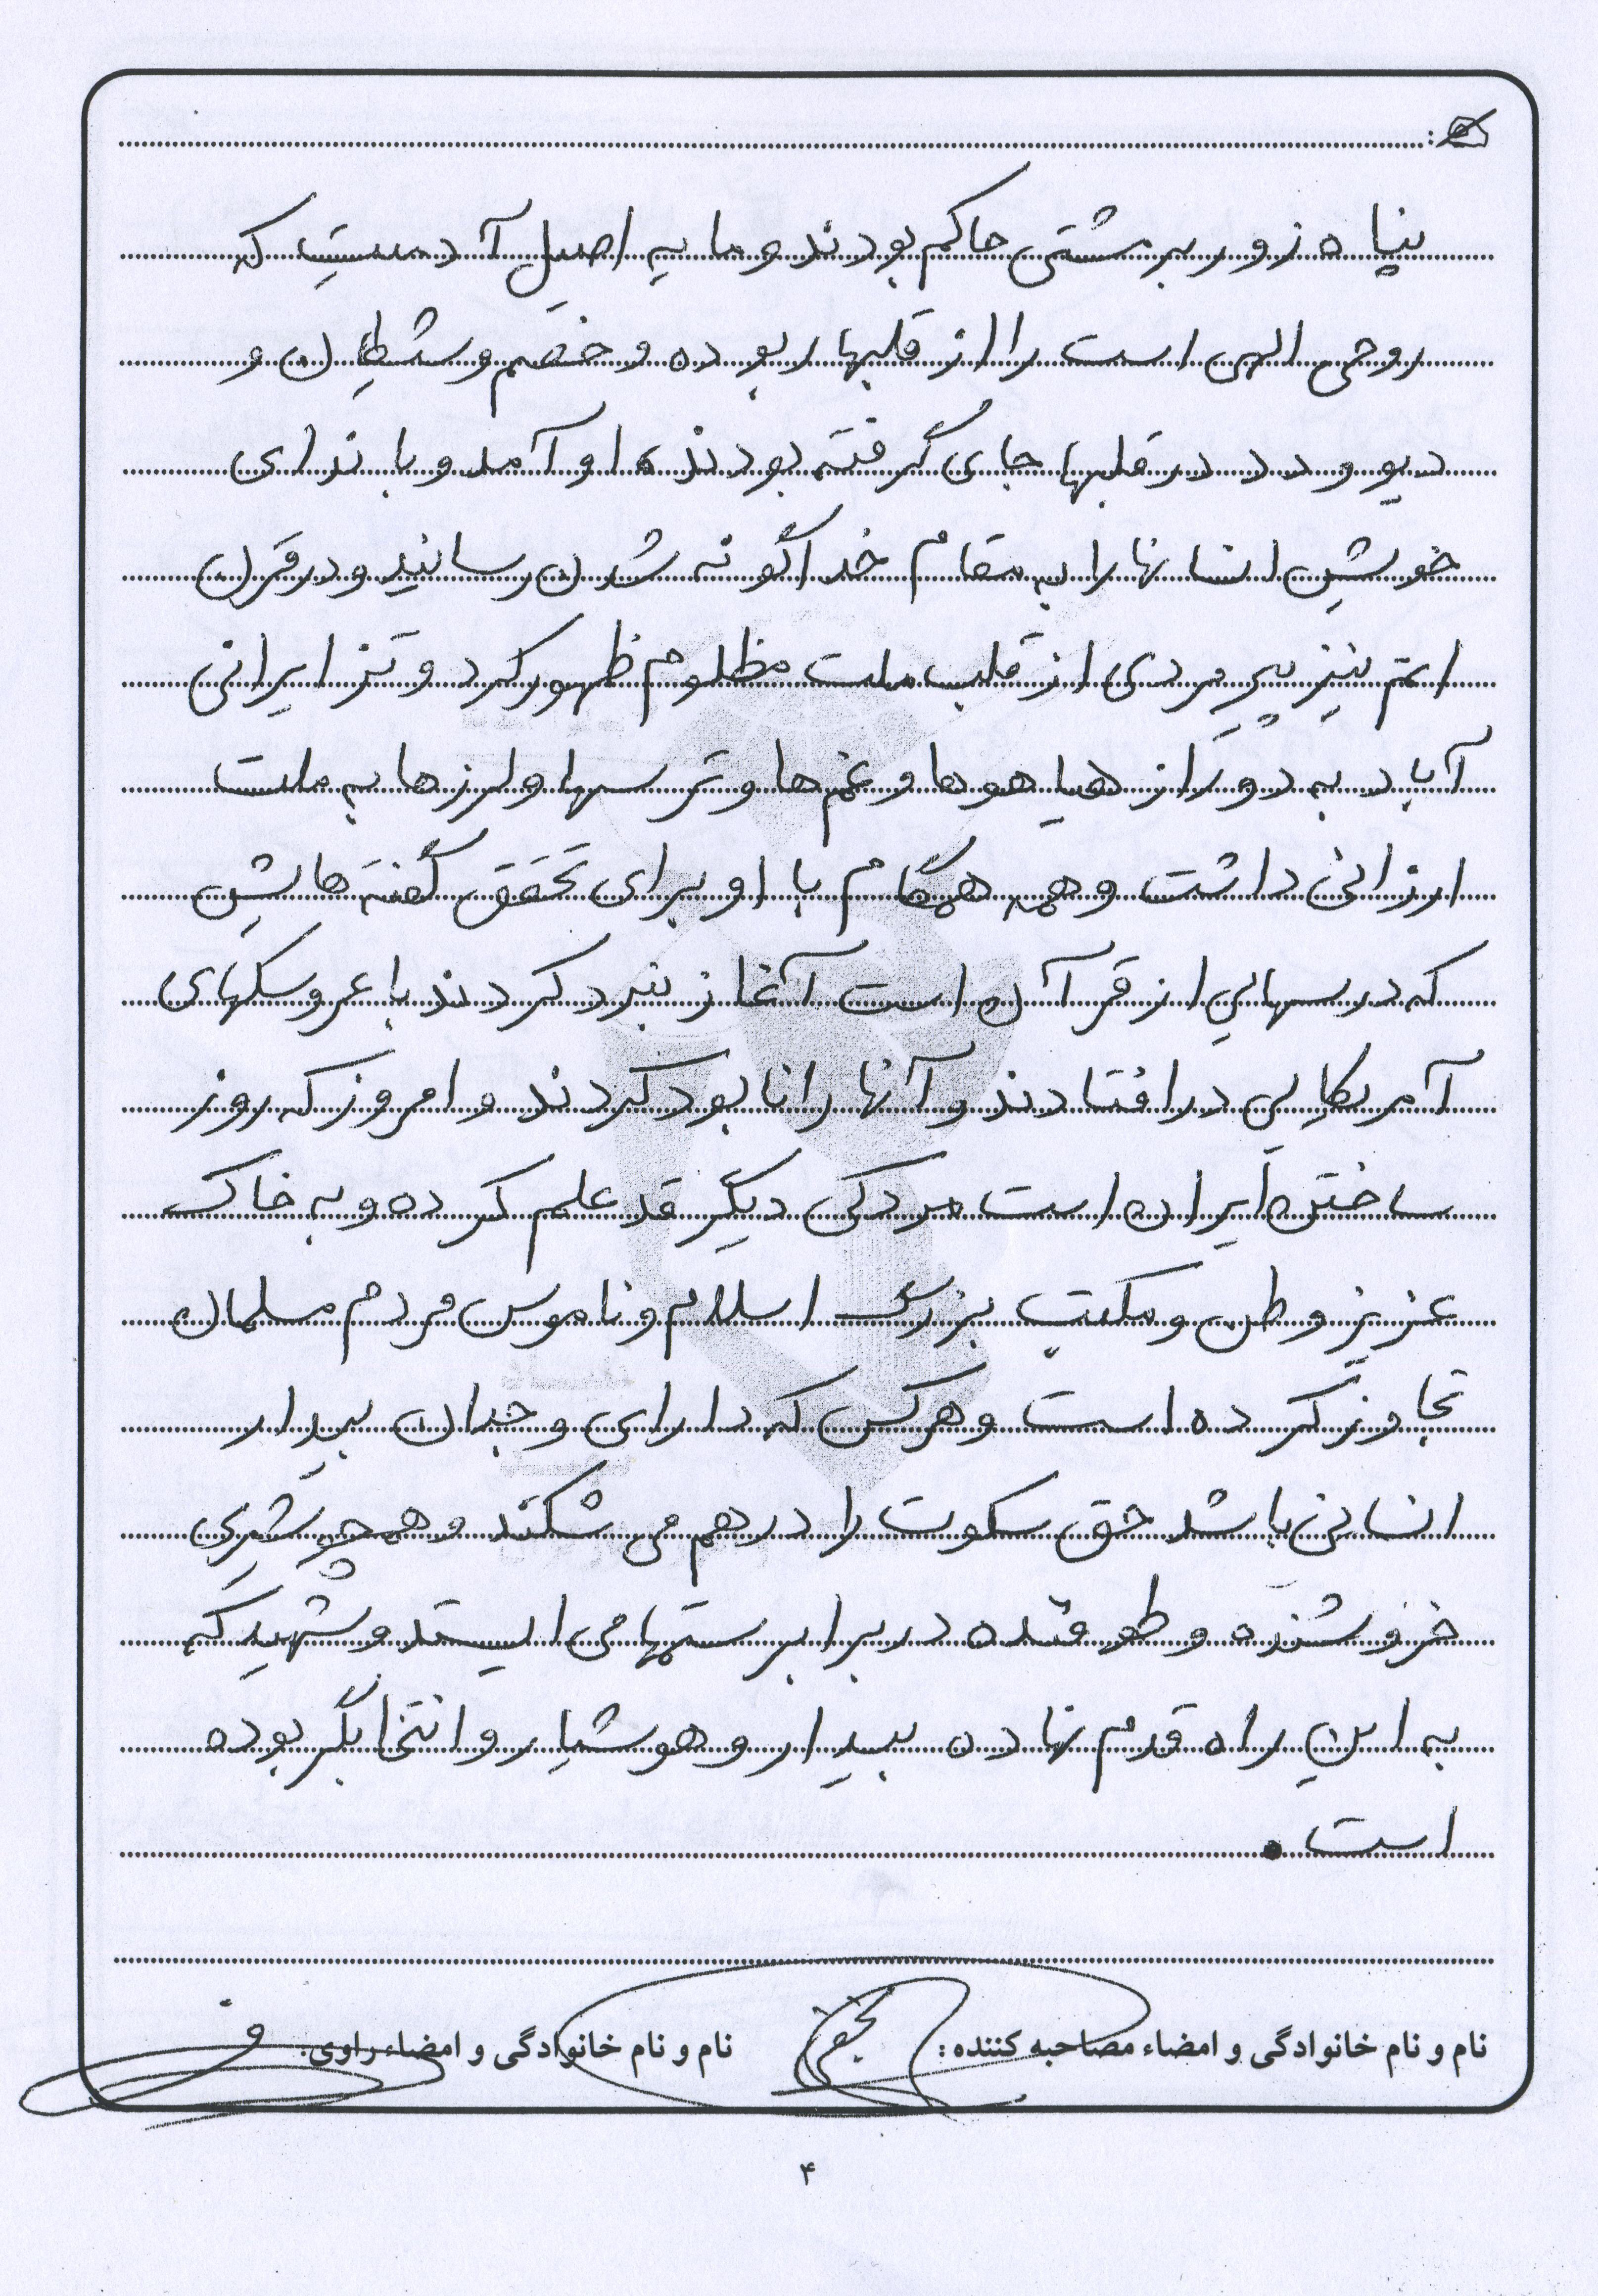 پناه زور بر مشتی حاکم بودند و مایه اصیل آدمیت که
روحی الهی است را از قلبها ربوده و خصم و شیطان و
دیو و دد در قلبها جای گرفته بودند، او آمد و با ندای
خویش انسانها را به مقام خداگونه شدن رسانید و در قرن
اتم نیز پیرمردی از قلب ملت مظلوم ظهور کرد و تز ایرانی
آباد به دور از هیاهوها و غم ها و ترسها و لرزها به ملت
ارزانی داشت و همه همگام با او برای تحقق گفته هایش
که درسهایی از قرآن است آغاز نبرد کردند با عروسکهای
آمریکایی درافتادند و آنها را نابود کردند و امروز که روز
ساختن ایران است مردکی دیگر قد علم کرده و به خاک
عزیز وطن و مکتب بزرگ اسلام و ناموس مردم مسلمان
تجاوز کرده است و هرکس که دارای وجدان بیدار
انسانی باشد حق سکوت را در هم می شکند و همچو شیری
خروشنده و طوفنده در برابر ستمها می ایستد و شهید که
به این راه قدم نهادن بیدار و هوشیار و انتخابگر بوده
است.
نام و نام خانوادگی و امضاء مصاحبه کننده: نام و نام خانوادگی و امضاء راوی:
۴